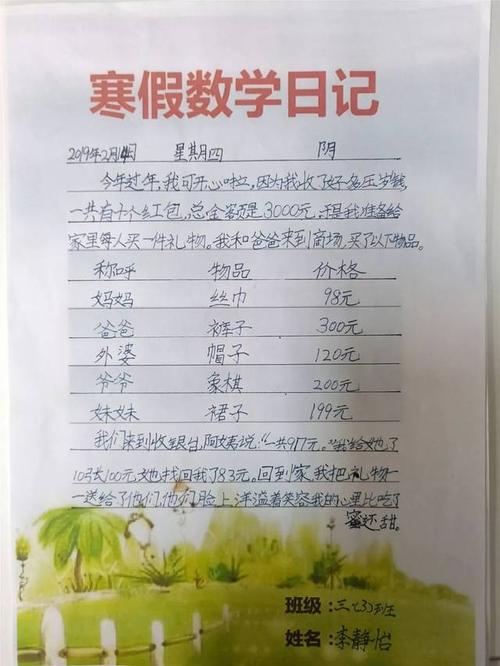 寒假数学日记
2019年2月14日 星期四 阴
今年过年,我可开心啦,因为我收了好多压岁钱,
一共有十个红包,总金额是3000元,于是我准备给
家里每人买一件礼物。我和爸爸来到商场,买了以下物品。
称呼 物品 价格
妈妈 丝巾 98元
爸爸 裤子 300元
外婆 帽子 120元
爷爷 象棋 200元
妹妹 裙子 199元
我们来到收银台,阿姨说:“一共917元。”我给她了
10张100元,她找回我了83元。回到家,我把礼物一
一送给了他们,他们脸上洋溢着笑容,我的心里比吃了
蜜还甜。
班级:三(3)班
姓名:李静怡